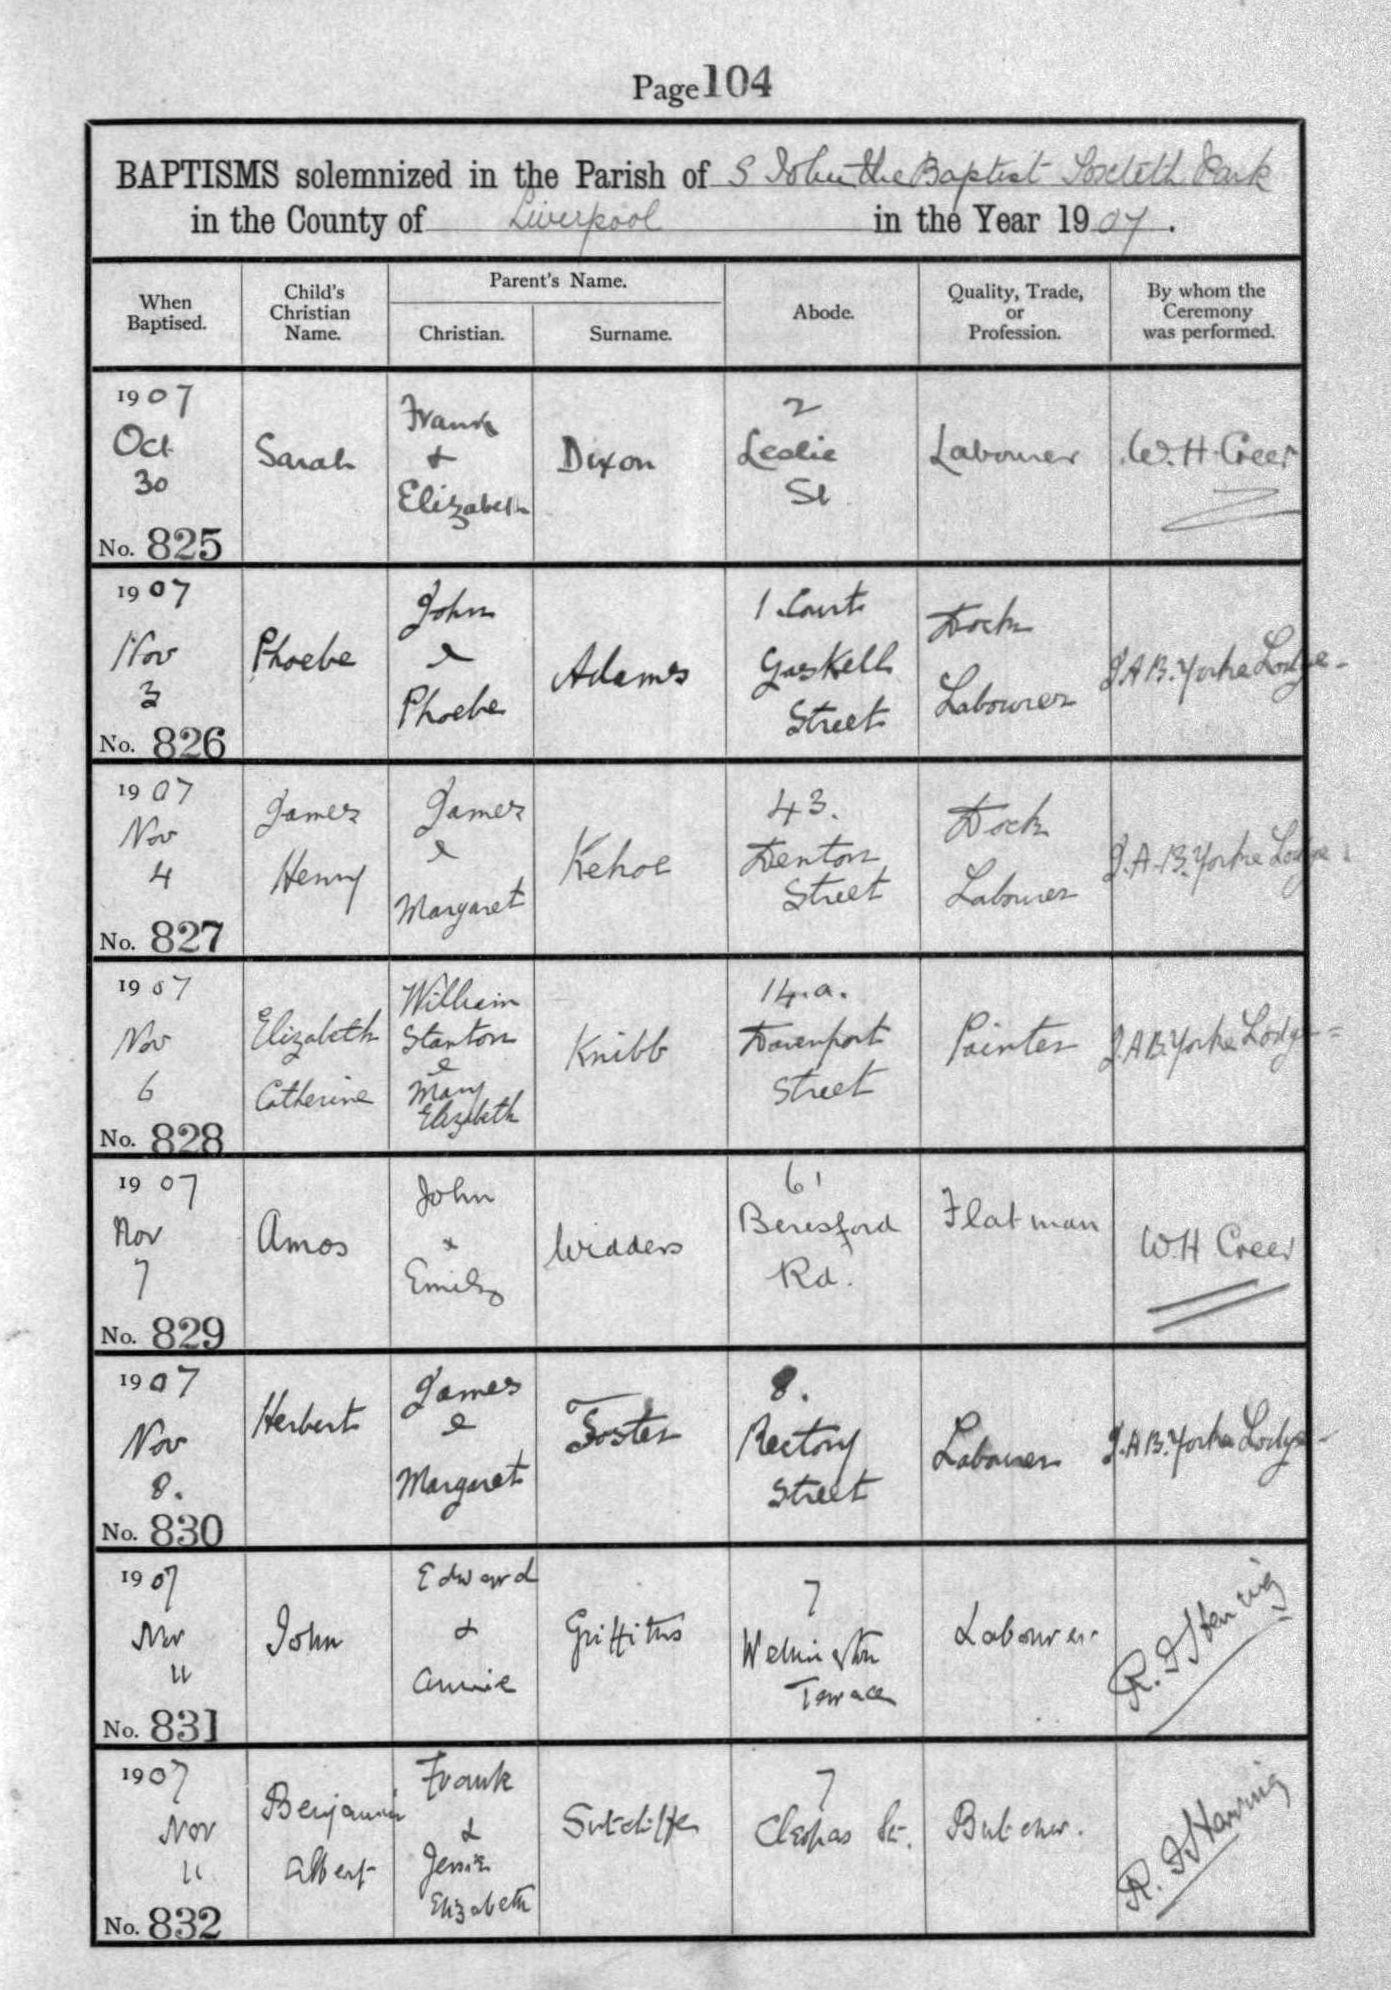 Page 104
BAPTISMS solemnized in the Parish of S John the Baptist Toxteth Park
in the County of Liverpool in the Year 1907.
When Baptised.
Child's Christian Name.
Parent's Name.
Christian.
Surname.
Abode.
Quality, Trade, or Profession.
By whom the Ceremony was performed.
1907
Oct
30
No. 825
Sarah
Frank
&
Elizabeth
Dixon
2
Leslie
St
Labourer
W. H. Creer
1907
Nov
3
No. 826
Phoebe
John
&
Phoebe
Adams
1 Court
Gaskell
Street
Dock
Labourer
J. A B. Yorke Lodge
1907
Nov
4
No. 827
James
Henry
James
&
Margaret
Kehoe
43.
Denton
Street
Dock
Labourer
J. A. B. Yorke Lodge
1907
Nov
6
No. 828
Elizabeth
Catherine
William
Stanton
&
Mary
Elizabeth
Knibb
14.a.
Davenport
Street
Painter
J. A B. Yorke Lodge
1907
Nov
7
No. 829
Amos
John
&
Emily
Widders
61
Beresford
Rd.
Flatman
W H Creer
1907
Nov
8.
No. 830
Herbert
James
&
Margaret
Foster
8.
Rectory
Street
Labourer
J. A B. Yorke Lodge
1907
Nov
11
No. 831
John
Edward
&
Annie
Griffiths
7
Wellington
Terrace
Labourer
R.
1907
Nov
11
No. 832
Benjamin
Albert
Frank
&
Jessie
Elizabeth
Sutcliffe
7
Cleopas St.
Butcher.
R.